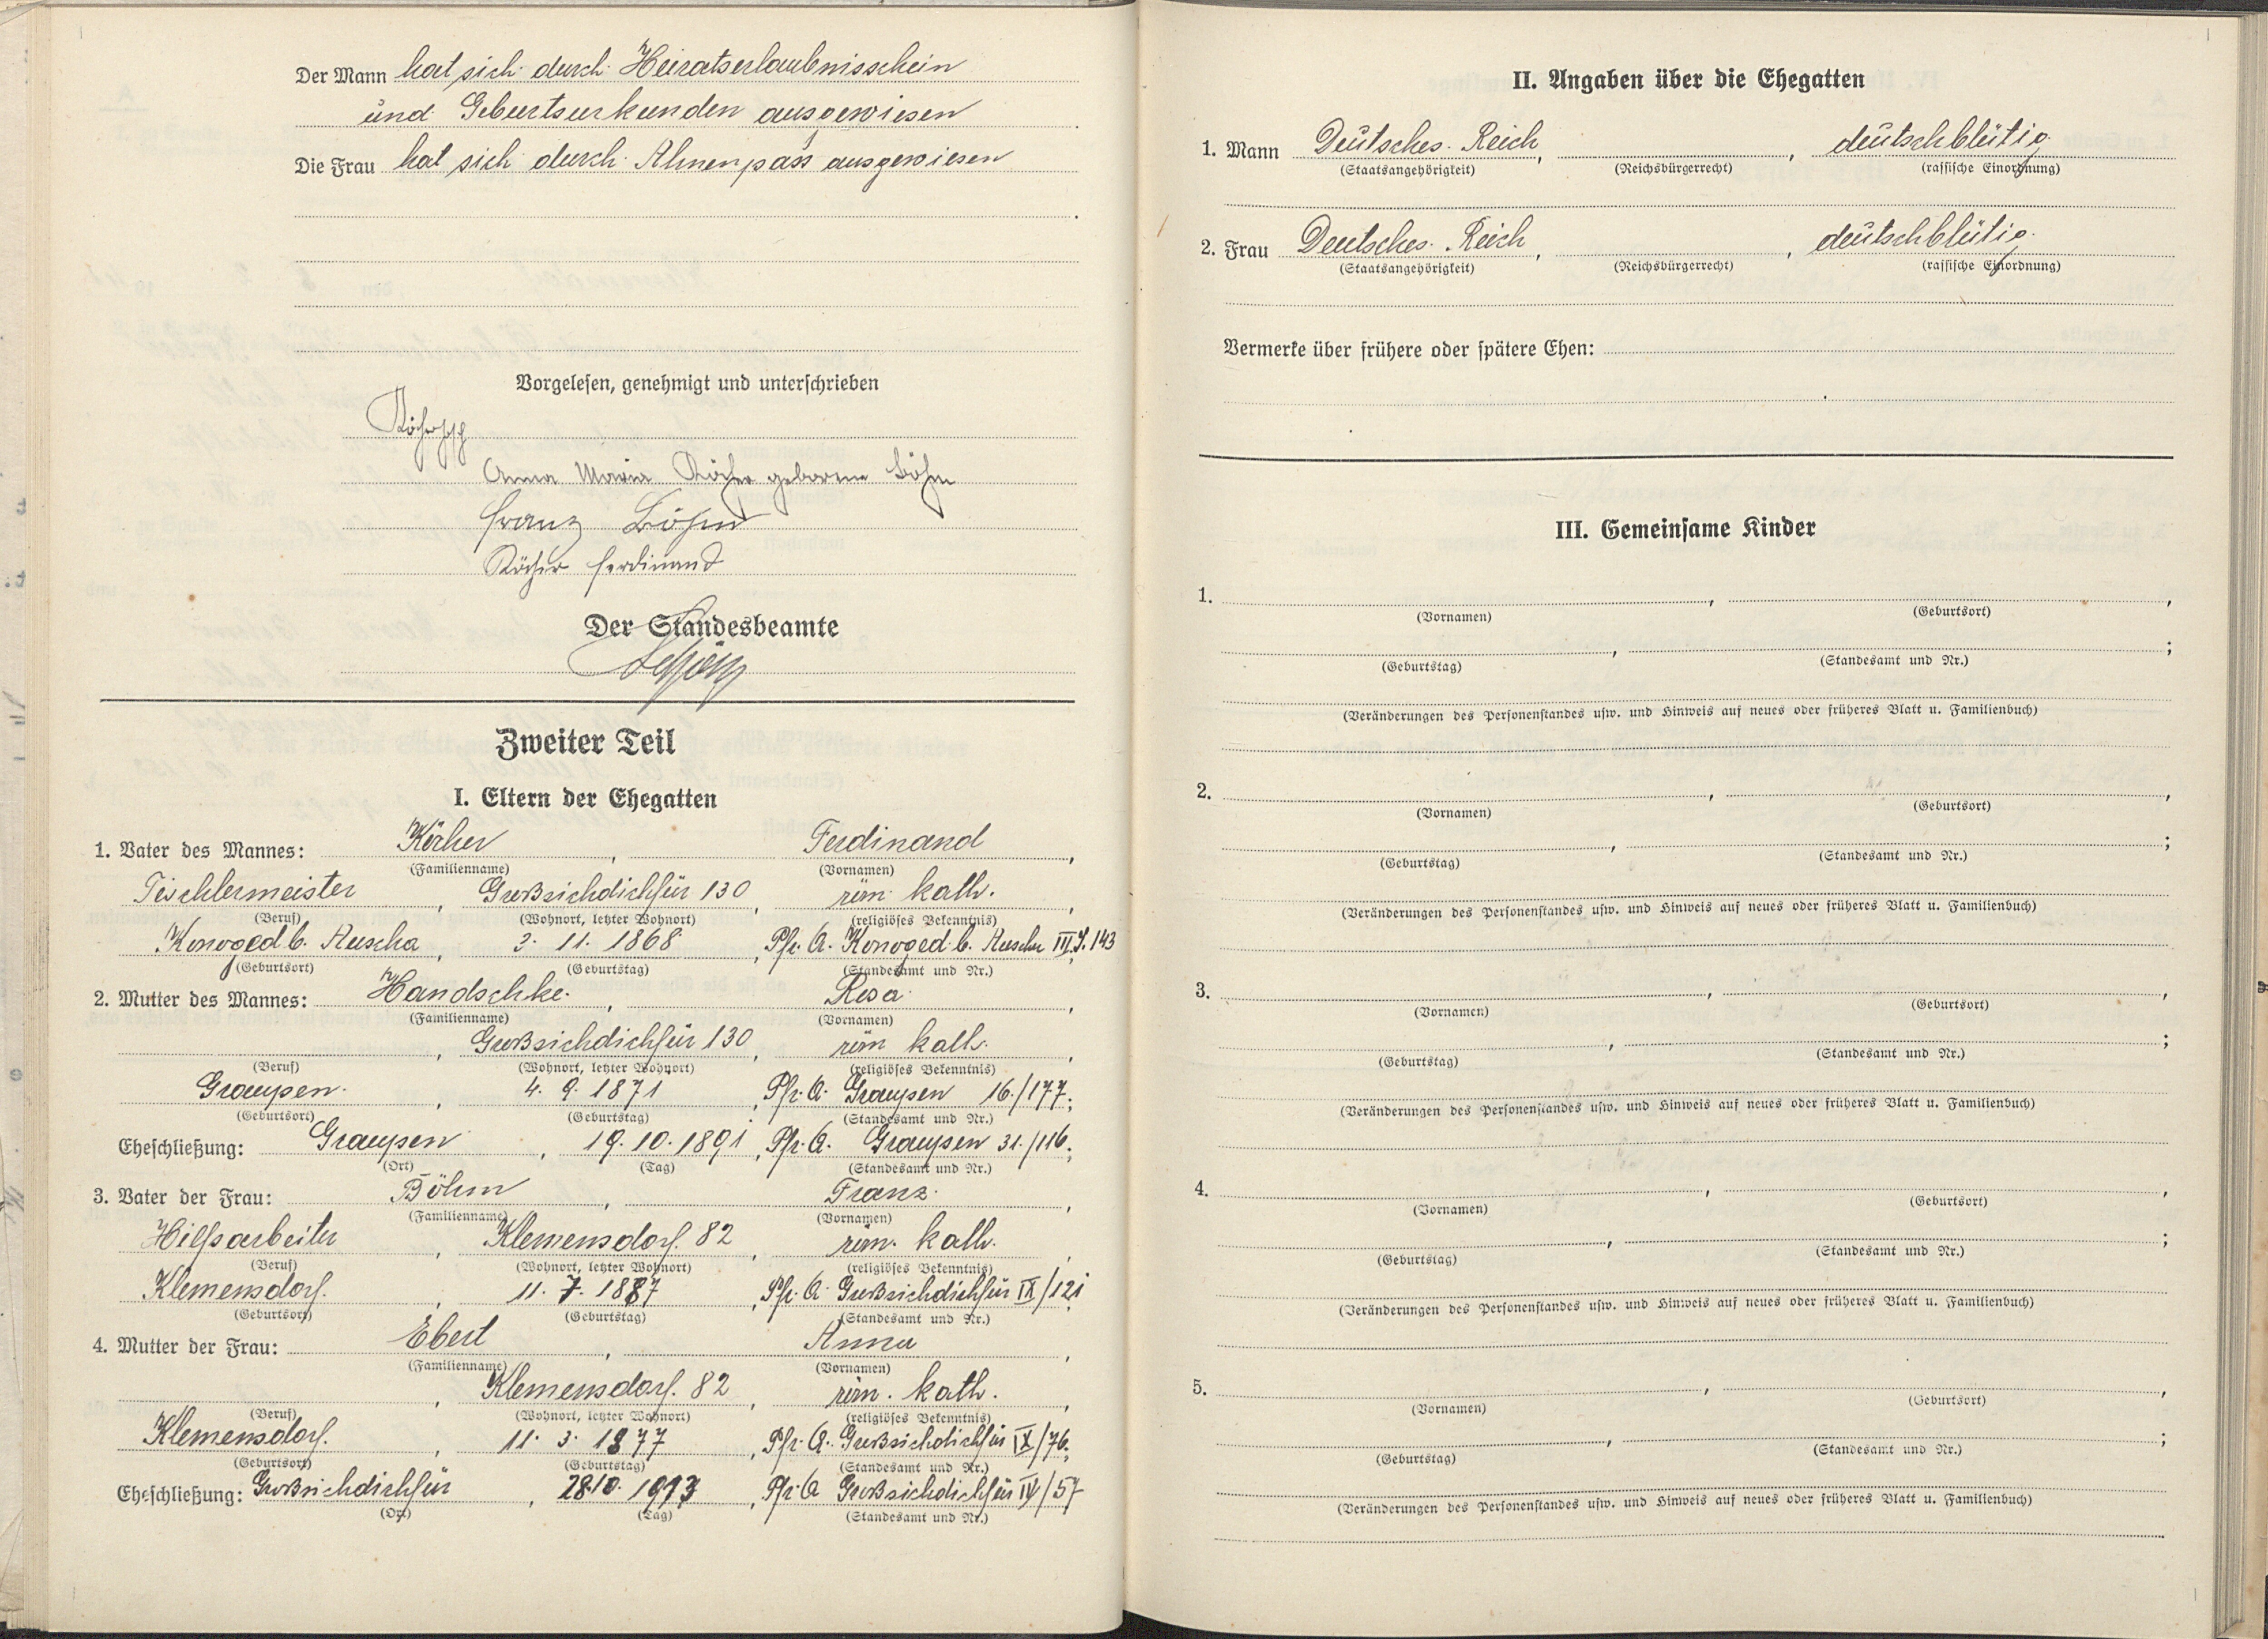 Der Mann hat sich durch Heiratserlaubnisschein
und Geburtsurkunden ausgewiesen
Die Frau hat sich durch Ahnenpass ausgewiesen
Vorgelesen, genehmigt und unterschrieben
Anna Maria Köcher geborene Böhm
Franz Böhm
Köcher Ferdinand
Der Standesbeamte
Zweiter Teil
I. Eltern der Ehegatten
1. Vater des Mannes: Köcher, Ferdinand,
(Familienname) (Vornamen)
Tischlermeister, Großsichdichfür 130, röm. kath.,
(Beruf) (Wohnort, letzter Wohnort) (religiöses Bekenntnis)
Konoged b. Auscha, 3. 11. 1868, Pfr. A. Konoged b. Auscha III, S. 143
(Geburtsort) (Geburtstag) (Standesamt und Nr.)
2. Mutter des Mannes: Handschke, Rosa,
(Familienname) (Vornamen)
, Großsichdichfür 130, röm kath.,
(Beruf) (Wohnort, letzter Wohnort) (religiöses Bekenntnis)
Graupen, 4. 9. 1871, Pfr. A. Graupen 16./177;
(Geburtsort) (Geburtstag) (Standesamt und Nr.)
Eheschließung: Graupen, 19. 10. 1891, Pfr. A. Graupen 31./116;
(Ort) (Tag) (Standesamt und Nr.)
3. Vater der Frau: Böhm, Franz,
(Familienname) (Vornamen)
Hilfsarbeiter, Klemensdorf 82, röm. kath.,
(Beruf) (Wohnort, letzter Wohnort) (religiöses Bekenntnis)
Klemensdorf, 11. 7. 1887, Pfr. A. Großsichdichfür IX/121
(Geburtsort) (Geburtstag) (Standesamt und Nr.)
4. Mutter der Frau: Ebert, Anna,
(Familienname) (Vornamen)
, Klemensdorf 82, röm. kath.,
(Beruf) (Wohnort, letzter Wohnort) (religiöses Bekenntnis)
Klemensdorf, 11. 3. 1877, Pfr. A. Großsichdichfür IX/76;
(Geburtsort) (Geburtstag) (Standesamt und Nr.)
Eheschließung: Großsichdichfür, 28.10. 1913, Pfr. A Großsichdichfür IV/57
(Ort) (Tag) (Standesamt und Nr.)
II. Angaben über die Ehegatten
1. Mann Deutsches Reich, , deutschblütig
(Staatsangehörigkeit) (Reichsbürgerrecht) (rassische Einordnung)
2. Frau Deutsches Reich, , deutschblütig
(Staatsangehörigkeit) (Reichsbürgerrecht) (rassische Einordnung)
Vermerke über frühere oder spätere Ehen:
III. Gemeinsame Kinder
1. , ,
(Vornamen) (Geburtsort)
, ;
(Geburtstag) (Standesamt und Nr.)
(Veränderungen des Personenstandes usw. und Hinweis auf neues oder früheres Blatt u. Familienbuch)
2. , ,
(Vornamen) (Geburtsort)
, ;
(Geburtstag) (Standesamt und Nr.)
(Veränderungen des Personenstandes usw. und Hinweis auf neues oder früheres Blatt u. Familienbuch)
3. , ,
(Vornamen) (Geburtsort)
, ;
(Geburtstag) (Standesamt und Nr.)
(Veränderungen des Personenstandes usw. und Hinweis auf neues oder früheres Blatt u. Familienbuch)
4. , ,
(Vornamen) (Geburtsort)
, ;
(Geburtstag) (Standesamt und Nr.)
(Veränderungen des Personenstandes usw. und Hinweis auf neues oder früheres Blatt u. Familienbuch)
5. , ,
(Vornamen) (Geburtsort)
, ;
(Geburtstag) (Standesamt und Nr.)
(Veränderungen des Personenstandes usw. und Hinweis auf neues oder früheres Blatt u. Familienbuch)